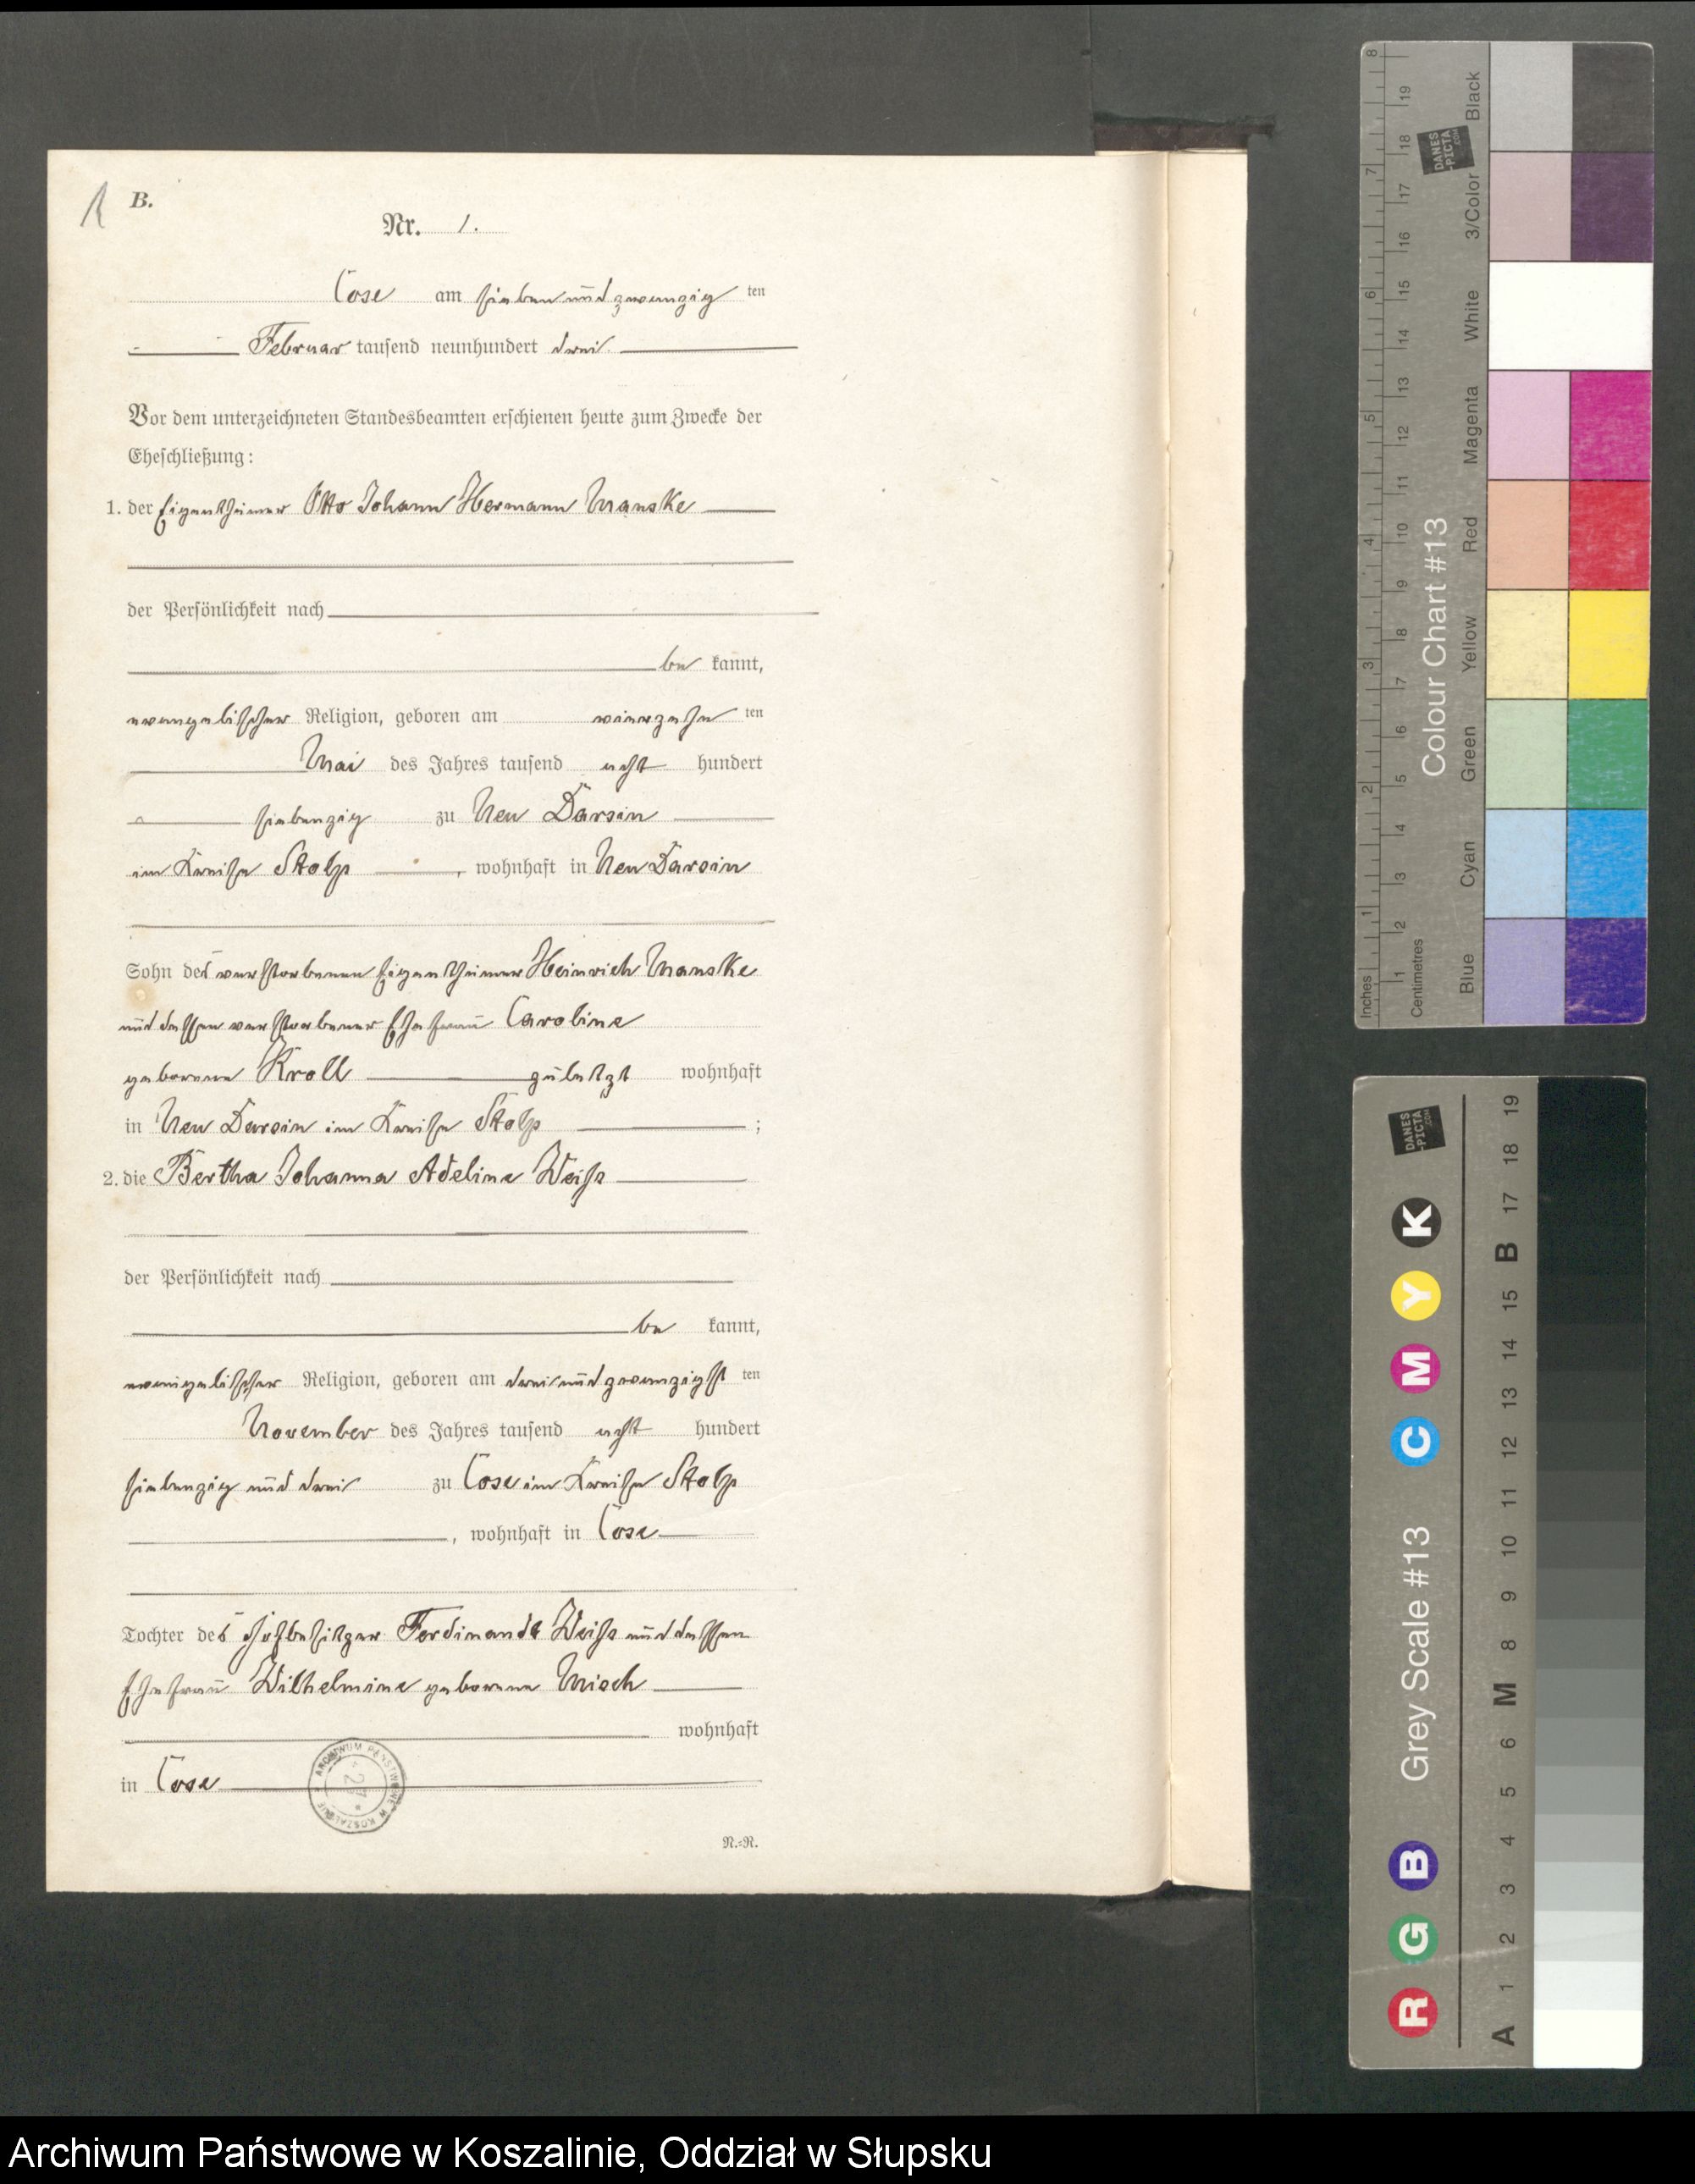 B.
Nr. 1.
Cose am siebenundzwanzig ten
Februar tausend neunhundert drei
Vor dem unterzeichneten Standesbeamten erschienen heute zum Zwecke der
Eheschließung:
1. der Eigenthümer Otto Johann Hermann Manske
der Persönlichkeit nach
be kannt,
evangelischer Religion, geboren am vierzehn ten
Mai des Jahres tausend acht hundert
siebenzig zu Neu Darsin
im Kreise Stolp, wohnhaft in Neu Darsin
Sohn des verstorbenen Eigenthümer Heinrich Manske
und dessen verstorbener Ehefrau Caroline
geborene Kroll zuletzt wohnhaft
in Neu Darsin im Kreise Stolp ;
2. die Bertha Johanna Adeline Weiß
der Persönlichkeit nach
be kannt,
evangelischer Religion, geboren am dreiundzwanzigst ten
November des Jahres tausend acht hundert
siebenzig und drei zu Cose im Kreise Stolp
, wohnhaft in Cose
Tochter des Hofbesitzer Ferdinand Weiß und dessen
Ehefrau Wilhelmine geborene Misch
wohnhaft
in Cose
ARCHIWUM PAŃSTWOWE W KOSZALINIE
R.=R.
Inches 1 2 3 4 5 6 7 8
Centimetres 1 2 3 4 5 6 7 8 9 10 11 12 13 14 15 16 17 18 19
DANES
-PICTA
.COM
Colour Chart #13
Blue Cyan Green Yellow Red Magenta White 3/Color Black
DANES
-PICTA
.COM
R G B Grey Scale #13 C M Y K
A 1 2 3 4 5 6 M 8 9 10 11 12 13 14 15 B 17 18 19
Archiwum Państwowe w Koszalinie, Oddział w Słupsku